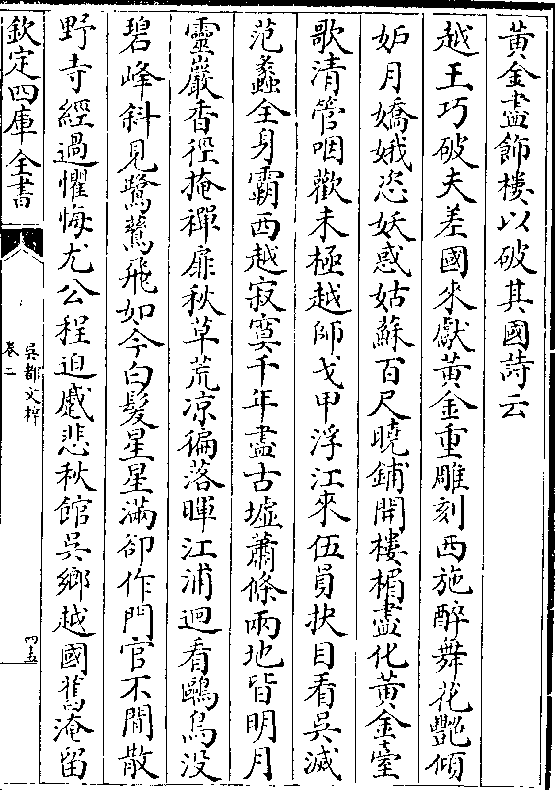 黃金盡飾樓以破其國詩云
越王巧破夫差國來獻黃金重雕刻西施醉舞花艷傾
妒月嬌娥恣妖惑姑蘇百尺曉鋪開樓楣盡化黃金臺
歌清管咽歡未極越師戈甲浮江來伍員抉目看吳滅
范蠡全身霸西越寂寞千年盡古墟蕭條兩地皆明月
靈巖香徑掩禪扉秋草荒凉徧落暉江浦迴看鷗鳥没
碧峰斜見鷺鷥飛如今白髮星星滿卻作門官不閒散
野寺經過懼悔尤公程迫蹙悲秋館吳鄉越國舊淹留
欽定四庫全書
吳都文粹
卷二
四五